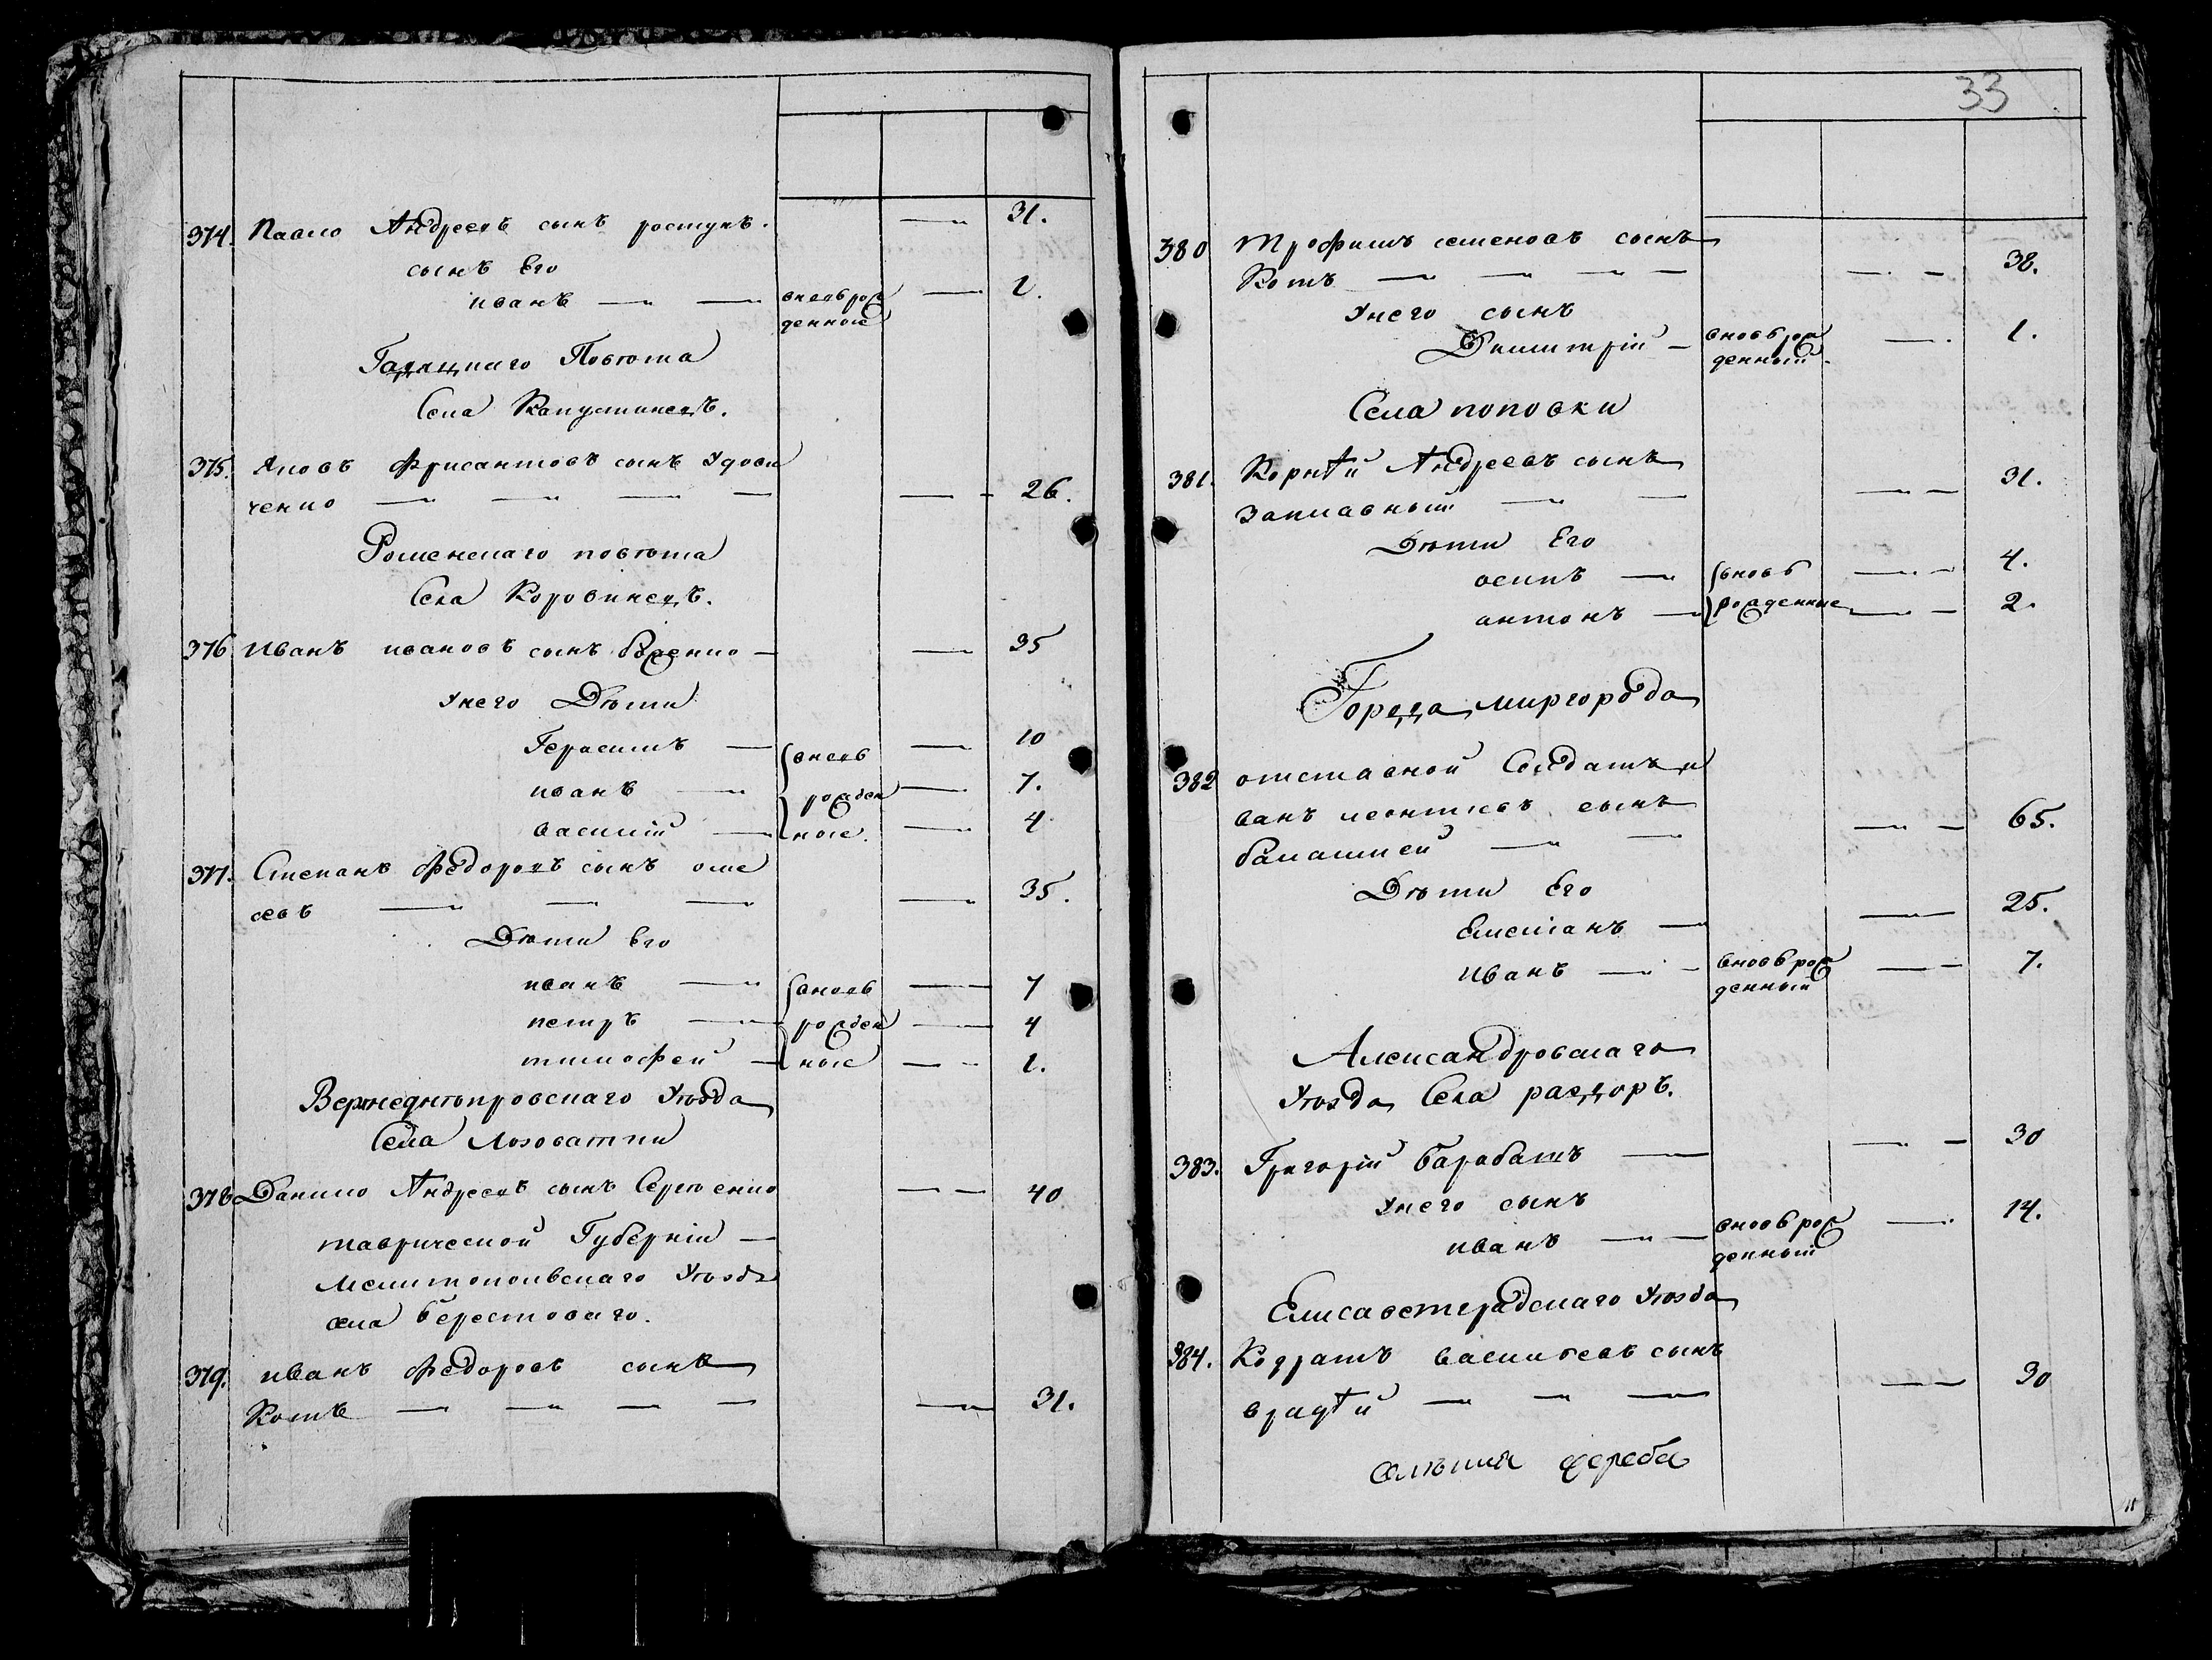 374. Павло Андреевъ сынъ ростунъ. — 31.
сынъ Его
иванъ — — вновь рож — 1.
денные
Гадяцкаго Повѣта
Села Капустинецъ.
375. Яковъ Фрисантовъ сынъ Удови
ченко — — — — — - 26.
Роменскаго повѣта
Села Коровинецъ.
376 Иванъ ивановъ сынъ Боженко — — 35
Унего Дѣти
Герасимъ — вновь — 10
иванъ — рожден — 7.
василій — ные. — 4
377. Степанъ Федоровъ сынъ оме
севъ — — — — 35.
Дѣти Его
иванъ — вновь — 7
петръ — рожден — 4
тимофей — ные — - 1.
Верхнеднѣпровскаго Уѣзда
Села Лозоватки
378 Данило Андреевъ сынъ Сергѣенко — — 40
таврической Губерніи —
Мелитопольскаго Уѣзда
села берестоваго.
379. иванъ Федоровъ сынъ
Котъ — — — — — 31.
33
380 Трофимъ семеновъ сынъ
Котъ — — — — — - 38.
Унего сынъ
Димитрій — вновь рож — 1.
денный.
Села поповки
381. Корнѣй Андреевъ сынъ
заплавный — — — — 31.
Дѣти Его
осипъ — вновь — - 4.
антонъ — рожденные — - 2.
Города миргорода
382 отставной Солдатъ и
ванъ леонтіевъ сынъ
балашней — — — - 65.
Дѣти Его
Емеліанъ — — 25.
Иванъ — - вновь рож — - 7.
денный
Александровскаго
Уѣзда Села раздоръ.
383. Григорій барабашъ — — - 30
Унего сынъ
иванъ — — вновь рож — 14.
денный
Елисаветградскаго Уѣзда
384. Кодратъ васильевъ сынъ
врадѣй — — — — — 30